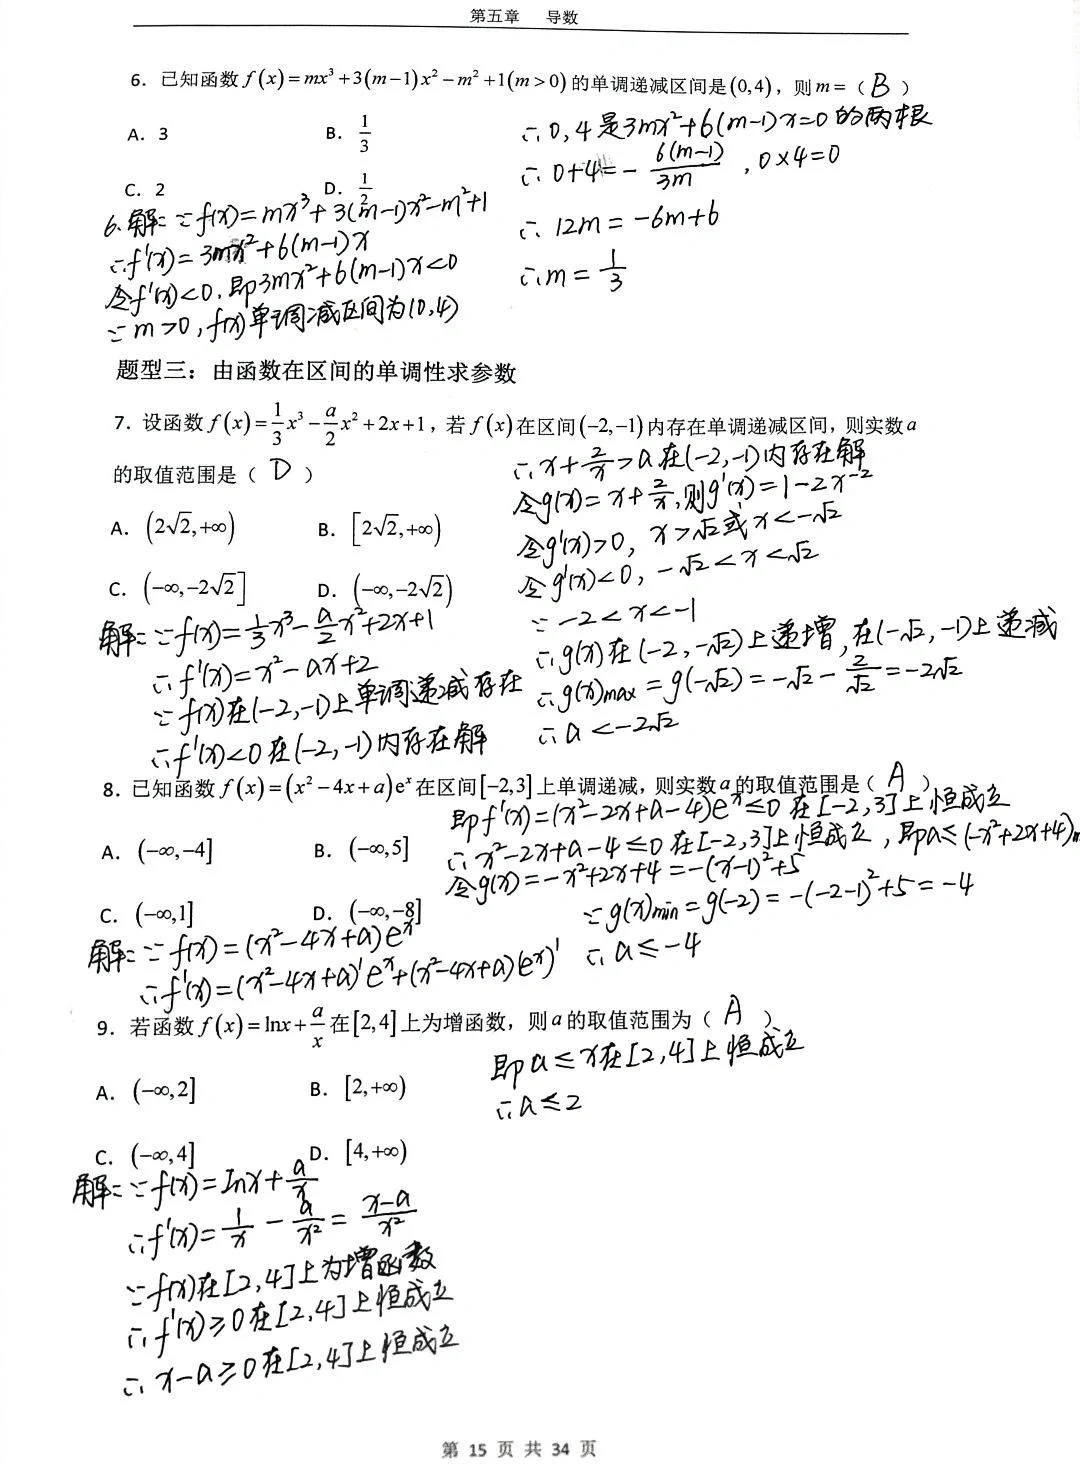 第五章 导数
6. 已知函数 f(x)=mx³+3(m−1)x²−m²+1(m>0)的单调递减区间是(0,4)，则m=（ B ）
A. 3
B. 1/3
C. 2
D. 1/2
6.解: ∵f(x)=mx³+3(m−1)x²−m²+1
∴f'(x)=3mx²+6(m−1)x
令f'(x)<0, 即3mx²+6(m−1)x<0
∵m>0, f(x)单调减区间为(0,4)
∴0,4是3mx²+6(m−1)x=0的两根
∴0+4=−6(m−1)/3m, 0×4=0
∴12m=−6m+6
∴m=1/3
题型三：由函数在区间的单调性求参数
7. 设函数 f(x)=1/3x³−a/2x²+2x+1，若 f(x)在区间(−2,−1)内存在单调递减区间，则实数a
的取值范围是（ D ）
A. (2√2,+∞)
B. [2√2,+∞)
C. (−∞,−2√2]
D. (−∞,−2√2)
解: ∵f(x)=1/3x³−a/2x²+2x+1
∴f'(x)=x²−ax+2
∵f(x)在(−2,−1)上单调递减存在
∴f'(x)<0在(−2,−1)内存在解
∴x+2/x>a在(−2,−1)内存在解
令g(x)=x+2/x,则g'(x)=1−2x⁻²
令g'(x)>0, x>√2或x<−√2
令g'(x)<0, −√2<x<√2
∵−2<x<−1
∴g(x)在(−2,−√2)上递增,在(−√2,−1)上递减
∴g(x)max=g(−√2)=−√2−2/√2=−2√2
∴a<−2√2
8. 已知函数 f(x)=(x²−4x+a)eˣ在区间[−2,3]上单调递减，则实数a的取值范围是（ A ）
A. (−∞,−4]
B. (−∞,5]
C. (−∞,1]
D. (−∞,−8]
解: ∵f(x)=(x²−4x+a)eˣ
∴f'(x)=(x²−4x+a)'eˣ+(x²−4x+a)(eˣ)'
即f'(x)=(x²−2x+a−4)eˣ≤0在[−2,3]上恒成立
∴x²−2x+a−4≤0在[−2,3]上恒成立, 即a≤(−x²+2x+4)
令g(x)=−x²+2x+4=−(x−1)²+5
∵g(x)min=g(−2)=−(−2−1)²+5=−4
∴a≤−4
9. 若函数 f(x)=lnx+a/x在[2,4]上为增函数，则a的取值范围为（ A ）
A. (−∞,2]
B. [2,+∞)
C. (−∞,4]
D. [4,+∞)
解: ∵f(x)=lnx+a/x
∴f'(x)=1/x−a/x²=x−a/x²
∵f(x)在[2,4]上为增函数
∴f'(x)≥0在[2,4]上恒成立
∴x−a≥0在[2,4]上恒成立
即a≤x在[2,4]上恒成立
∴a≤2
第 15 页 共 34 页